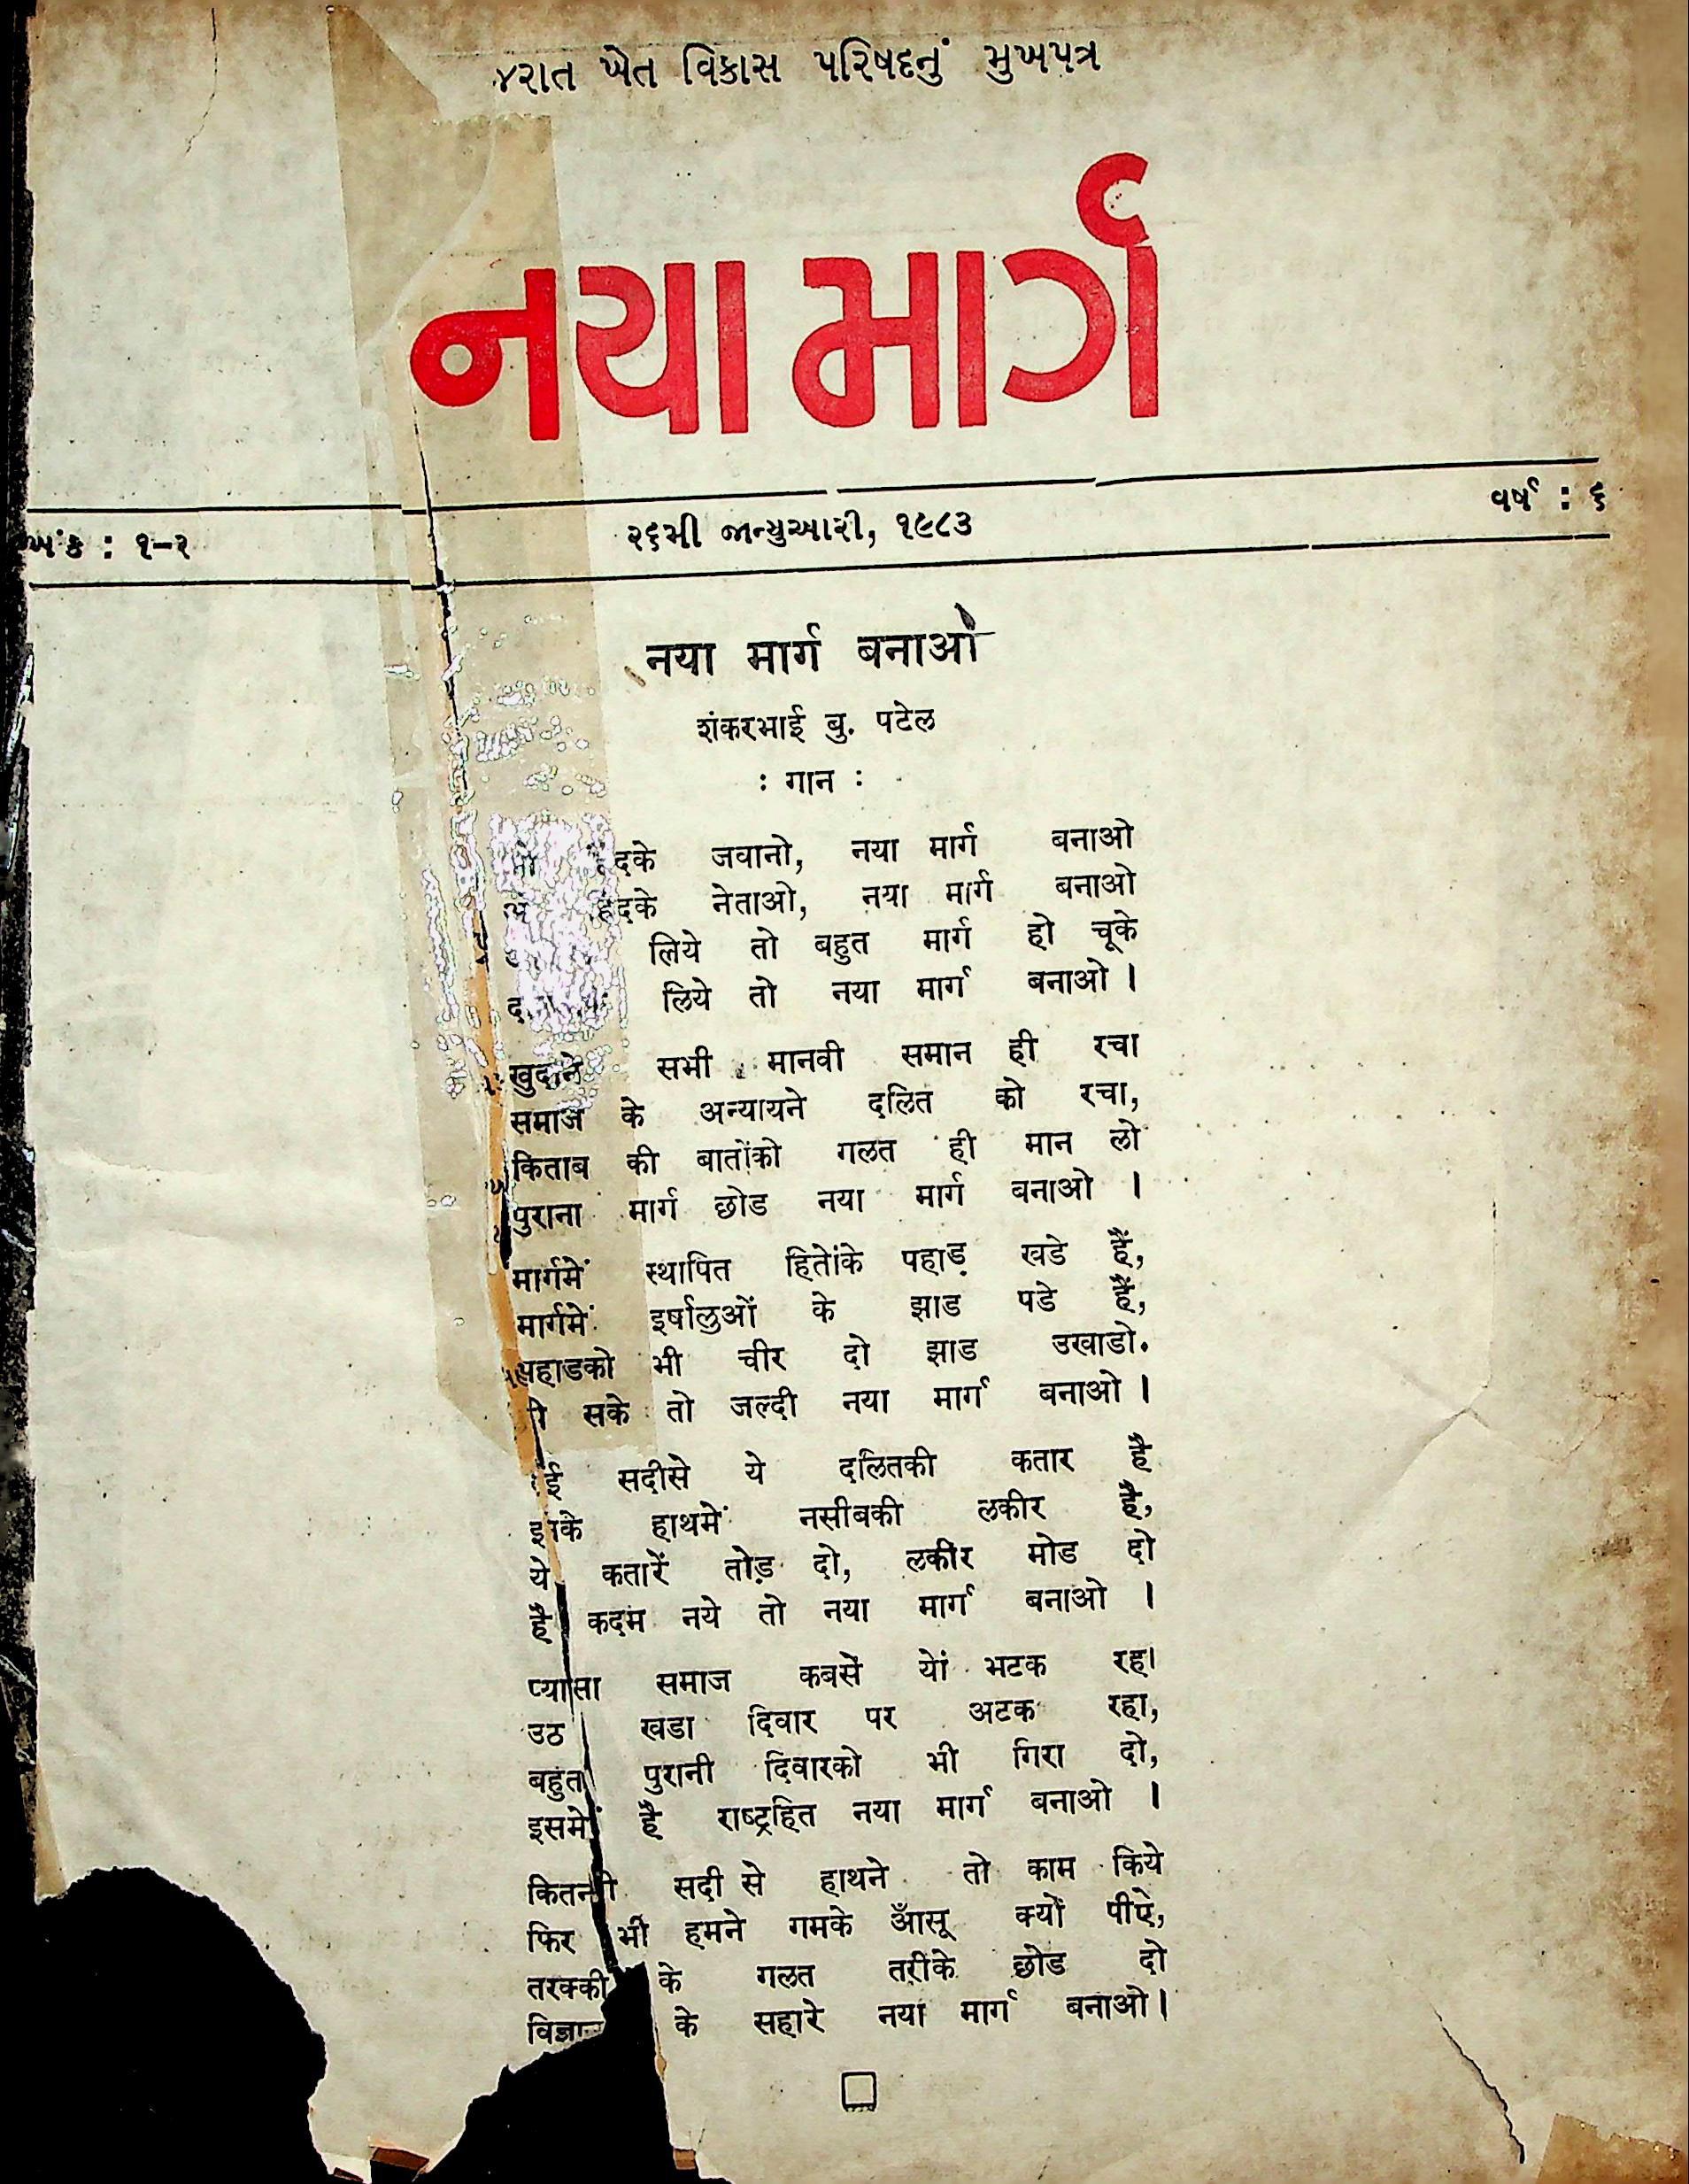 ખેત વિકાસ પરિષદનું મુખપત્ર
નયા માર્ગ
અંક : ૧-૨ ૨૬મી જાન્યુઆરી, ૧૯૮૩ વર્ષ : ૬
नया मार्ग बनाओ
शंकरभाई बु. पटेल
: गान :
जवानो, नया मार्ग बनाओ
हिंदके नेताओ, नया मार्ग बनाओ
लिये तो बहुत मार्ग हो चूके
लिये तो नया मार्ग बनाओ ।
खुदाने सभी मानवी समान ही रचा
समाज के अन्यायने दलित को रचा,
किताब की बातोंको गलत ही मान लो
पुराना मार्ग छोड नया मार्ग बनाओ ।
मार्गमें स्थापित हितोंके पहाड़ खडे हैं,
मार्गमें इर्षालुओं के झाड पडे हैं,
पहाडको भी चीर दो झाड उखाडो.
सके तो जल्दी नया मार्ग बनाओ ।
सदीसे ये दलितकी कतार है
इनके हाथमें नसीबकी लकीर है,
ये कतारें तोड़ दो, लकीर मोड दो
है कदम नये तो नया मार्ग बनाओ ।
प्यासा समाज कबसें यों भटक रहा
उठ खडा दिवार पर अटक रहा,
बहुत पुरानी दिवारको भी गिरा दो,
इसमें है राष्ट्रहित नया मार्ग बनाओ ।
कितनी सदी से हाथने तो काम किये
फिर भी हमने गमके आँसू क्यों पीऐ,
तरक्की के गलत तरीके छोड दो
के सहारे नया मार्ग बनाओ।